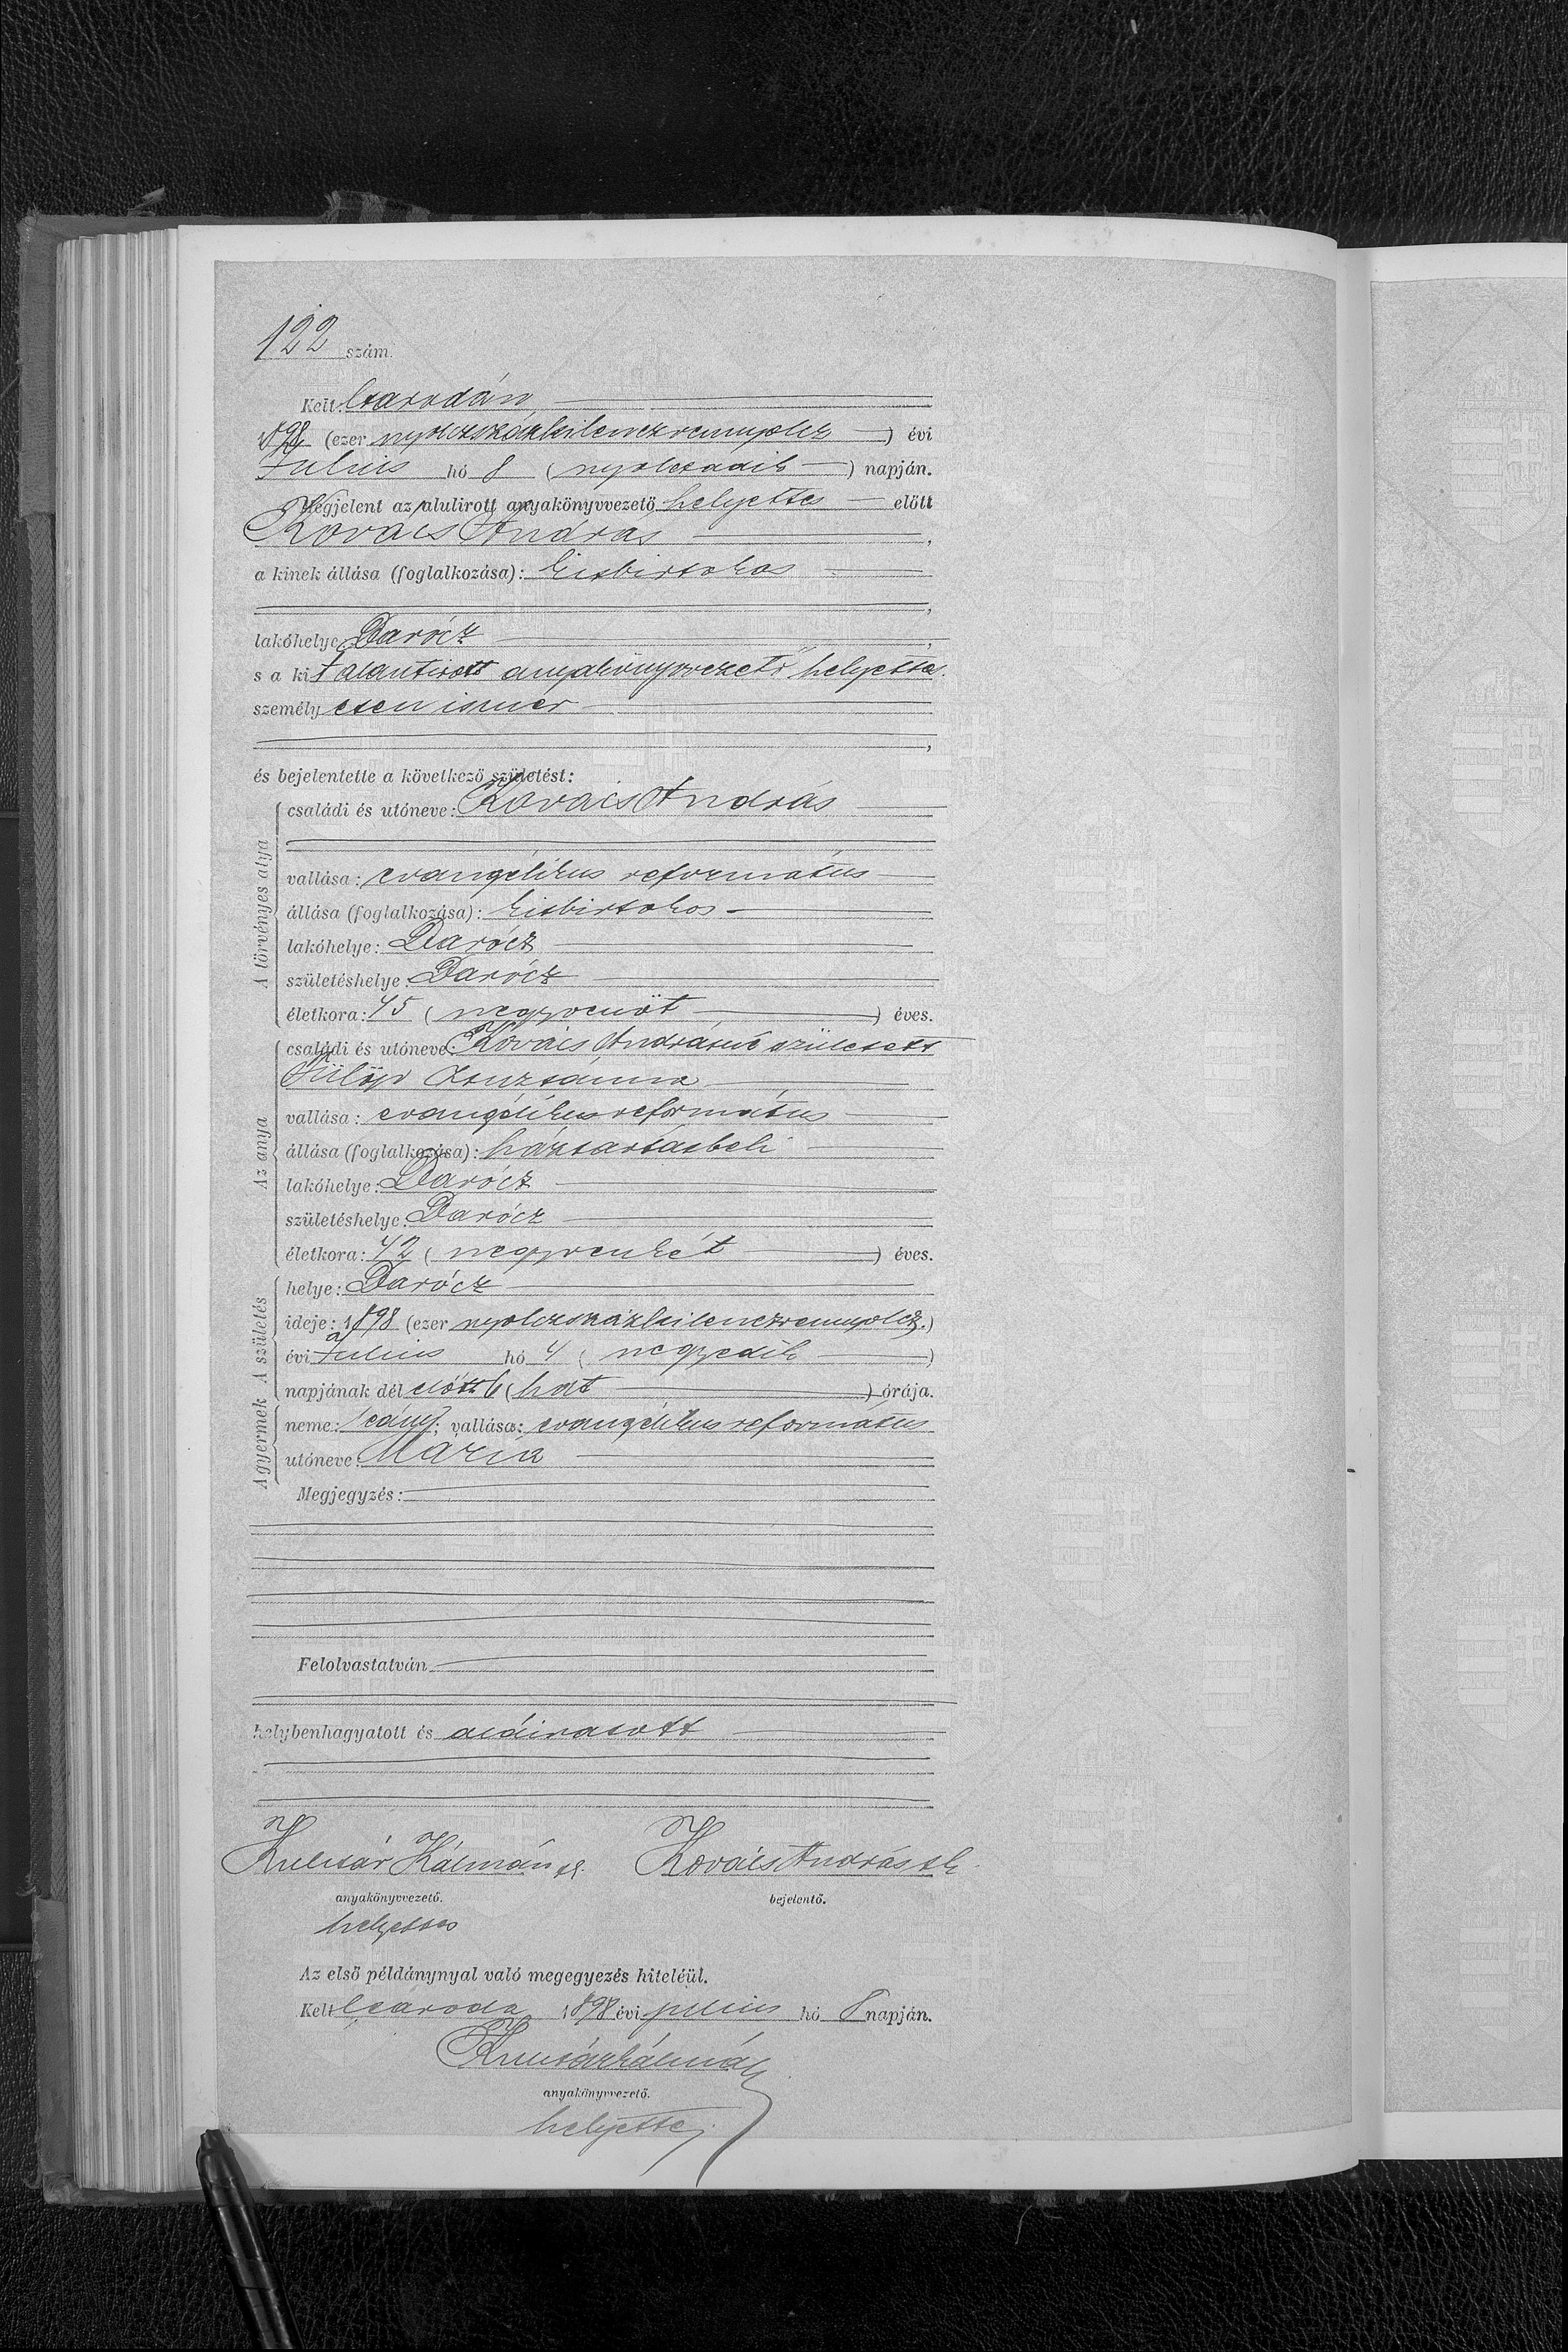 122 szám.
Kelt: Csarodán
1898 (ezer nyolczszázkilenczvennyolcz) évi
Julius hó 8 (nyolczadik) napján.
Megjelent az alulirott anyakönyvvezető helyettes előtt
Kovács András,
a kinek állása (foglalkozása): kisbirtokos
lakóhelye Darócz
s a kit alantirott anyakönyvvezető helyettes
személyesen ismer
és bejelentette a következő születést:
A törvényes atya
családi és utóneve: Kovács András
vallása: evangélikus református
állása (foglalkozása): kisbirtokos
lakóhelye: Darócz
születéshelye: Darócz
életkora: 45 (negyvenöt) éves.
Az anya
családi és utóneve: Kovács Andrásné született
Fülöp Zsuzsánna
vallása: evangélikus református
állása (foglalkozása): háztartásbeli
lakóhelye: Darócz
születéshelye: Darócz
életkora: 42 (negyvenkét) éves.
A születés
helye: Darócz
ideje: 1898 (ezer nyolczszázkilenczvennyolcz.)
évi Julius hó 4 (negyedik)
napjának dél előtt 6 (hat) órája.
A gyermek
neme: leány; vallása: evangélikus református
utóneve: Mária
Megjegyzés:
Felolvastatván
helybenhagyatott és aláiratott
Kulcsár Kálmán sk. Kovács András sk.
anyakönyvvezető. bejelentő.
helyettes
Az első példánynyal való megegyezés hiteléül.
Kelt Csaroda 1898 évi julius hó 8 napján.
Kulcsár Kálmán
anyakönyvvezető.
helyettes.